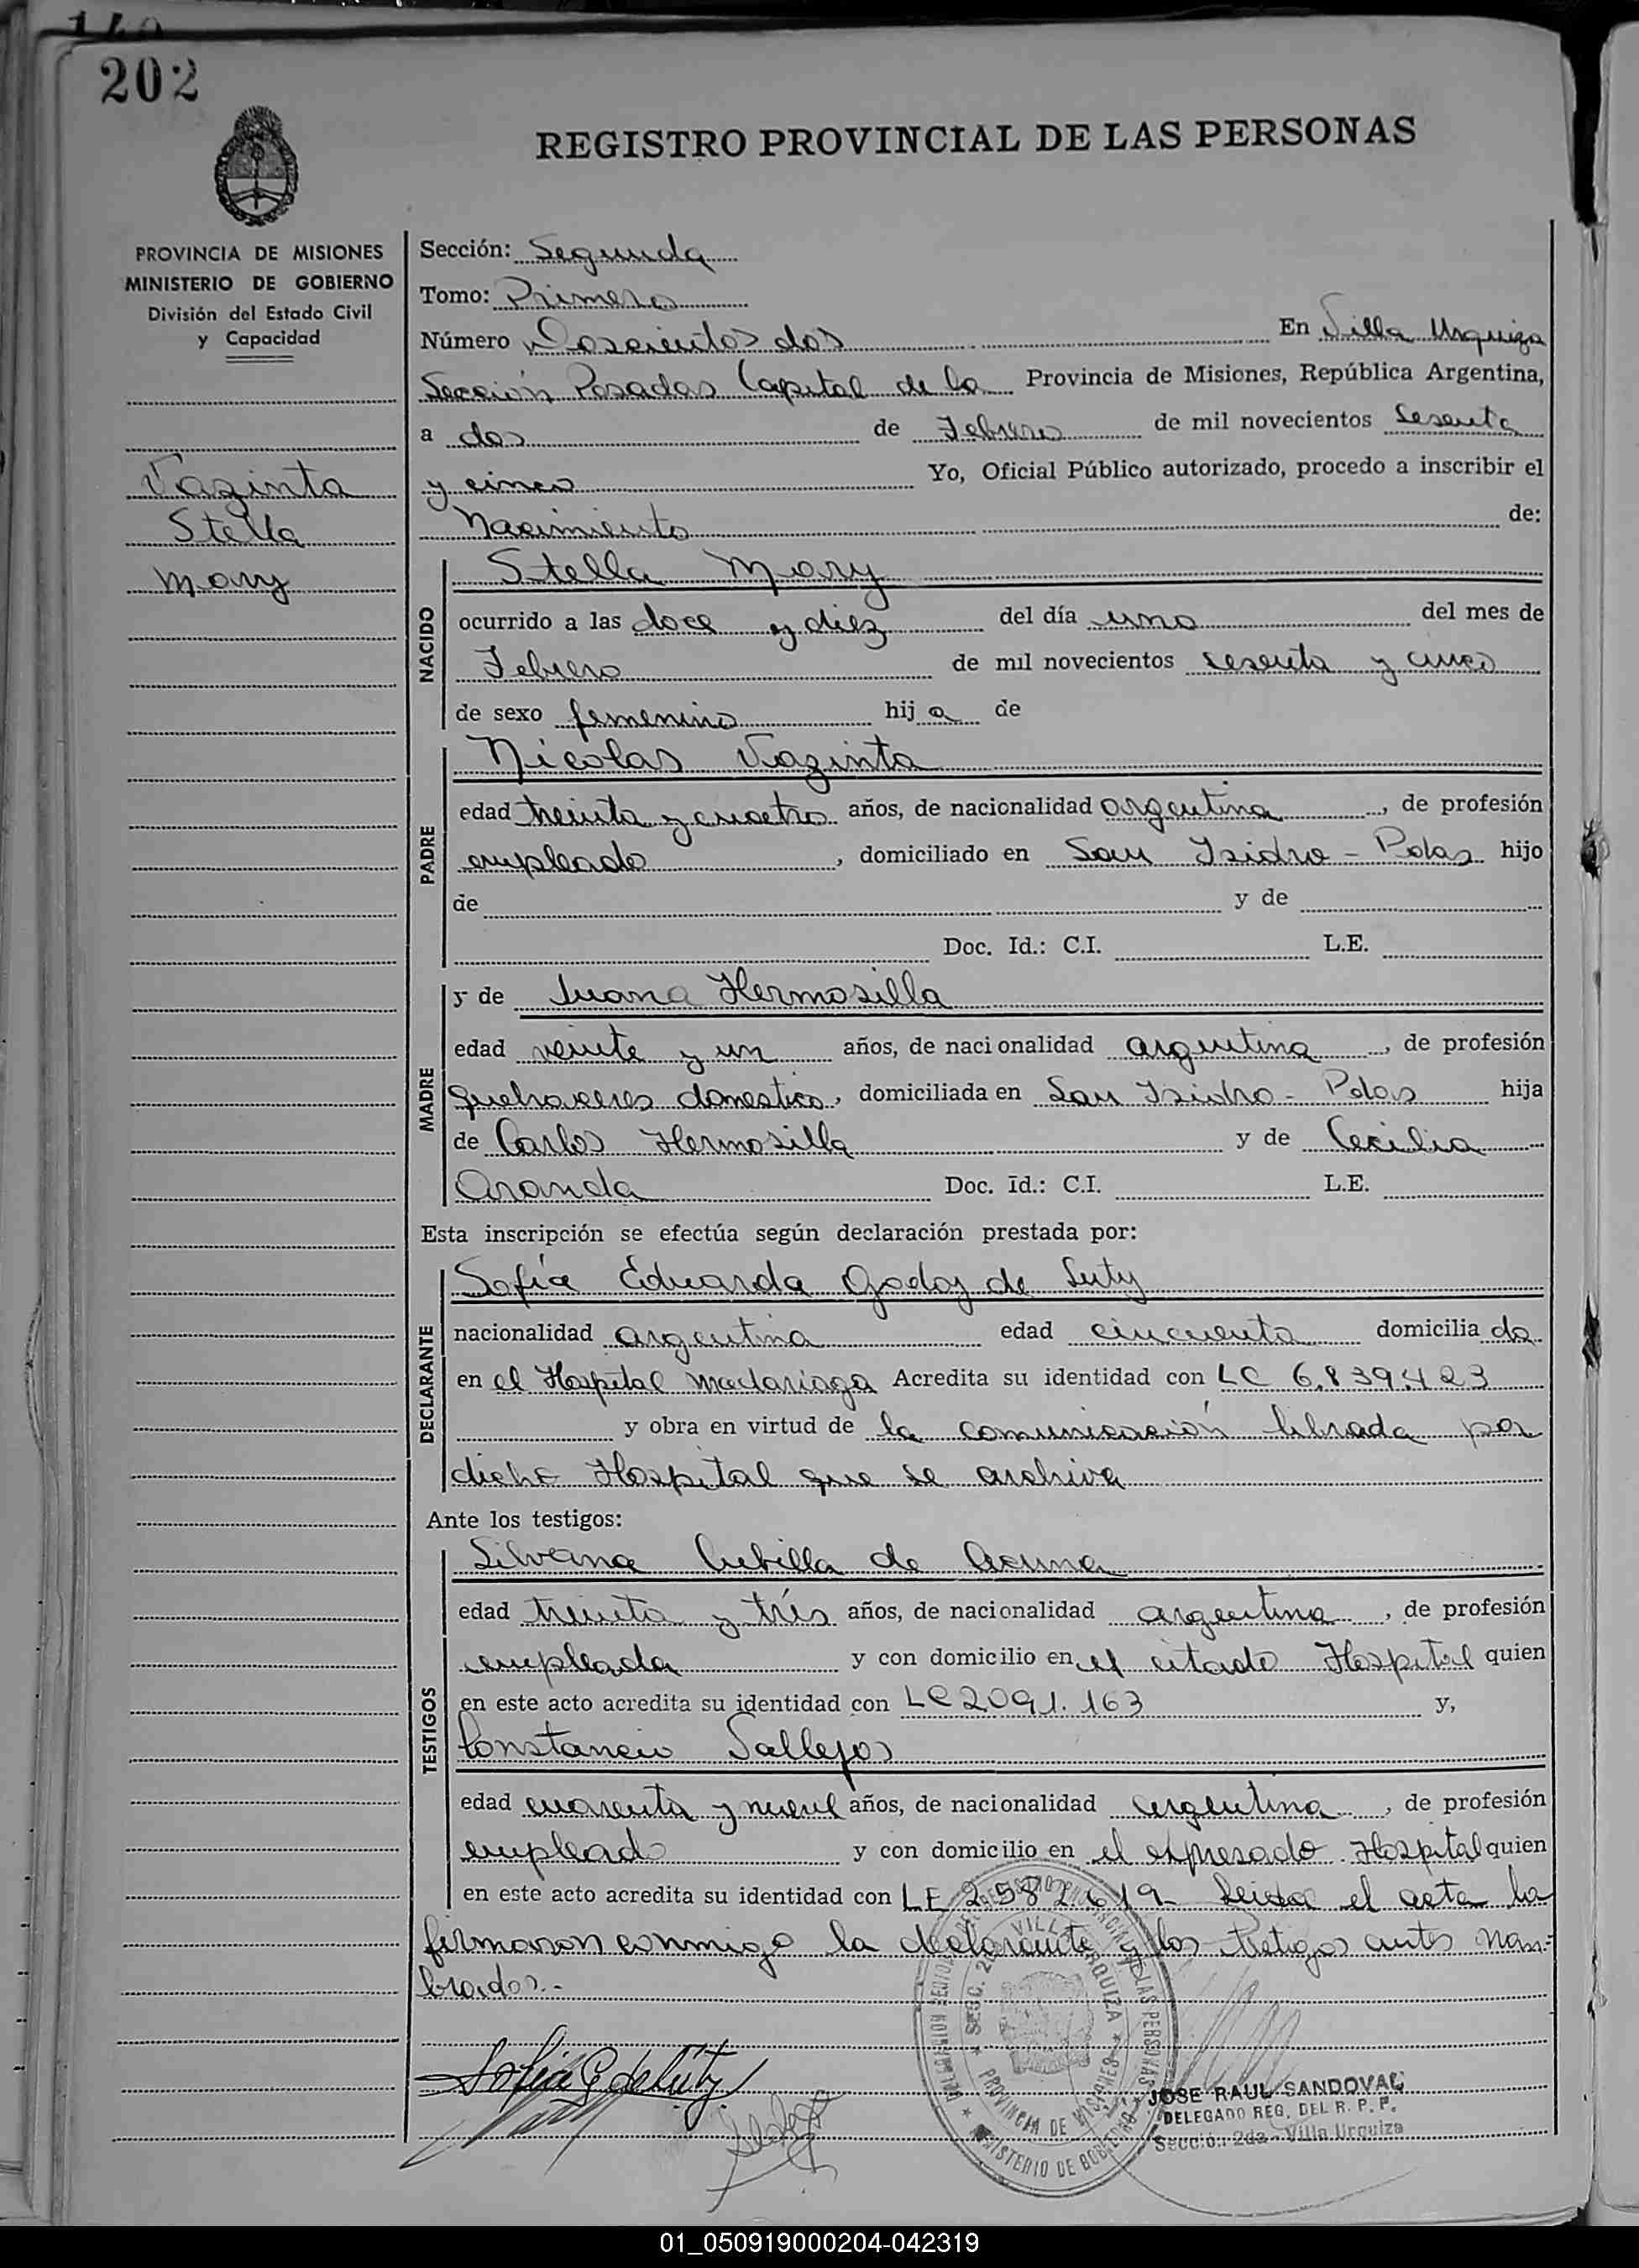 202
REGISTRO PROVINCIAL DE LAS PERSONAS
PROVINCIA DE MISIONES
MINISTERIO DE GOBIERNO
División del Estado Civil
y Capacidad
Vazinta
Stella
Mary
Sección: Segunda
Tomo: Primero
Número Doscientos dos En Villa Urquiza
Sección Posadas Capital de la Provincia de Misiones, República Argentina,
a dos de Febrero de mil novecientos Sesenta
y cinco Yo, Oficial Público autorizado, procedo a inscribir el
Nacimiento de:
NACIDO
Stella Mary
ocurrido a las doce y diez del día uno del mes de
Febrero de mil novecientos sesenta y cinco
de sexo femenino hija de
PADRE
Nicolas Vazinta
edad treinta y cuatro años, de nacionalidad argentina, de profesión
empleado, domiciliado en San Isidro - Pdas hijo
de y de
Doc. Id.: C.I. L.E.
MADRE
y de Juana Hermosilla
edad veinte y un años, de nacionalidad argentina, de profesión
quehaceres domestico, domiciliada en San Isidro - Pdas hija
de Carlos Hermosilla y de Cecilia
Aranda Doc. Id.: C.I. L.E.
Esta inscripción se efectúa según declaración prestada por:
DECLARANTE
Sofía Eduarda Godoy de Luty
nacionalidad argentina edad cincuenta domiciliada
en el Hospital Madariaga Acredita su identidad con LC 6.839.423
y obra en virtud de la comunicación librada por
dicho Hospital que se archiva
Ante los testigos:
TESTIGOS
Silvana Cubilla de Acuna
edad treinta y trés años, de nacionalidad argentina, de profesión
empleada y con domicilio en el citado Hospital quien
en este acto acredita su identidad con LC 2091.163 y,
Constancio Vallejos
edad cuarenta y nueve años, de nacionalidad argentina, de profesión
empleado y con domicilio en el expresado Hospital quien
en este acto acredita su identidad con LE 2.582.619- Leida el acta la
firmaron conmigo la declarante y los testigos antes nom-
brados.-
Sofia G de Luty
SECC. 2da VILLA URQUIZA
PROVINCIA DE MISIONES
MINISTERIO DE GOBIERNO
JOSE RAUL SANDOVAL
DELEGADO REG. DEL R. P. P.
Sección 2da - Villa Urquiza
01_050919000204-042319